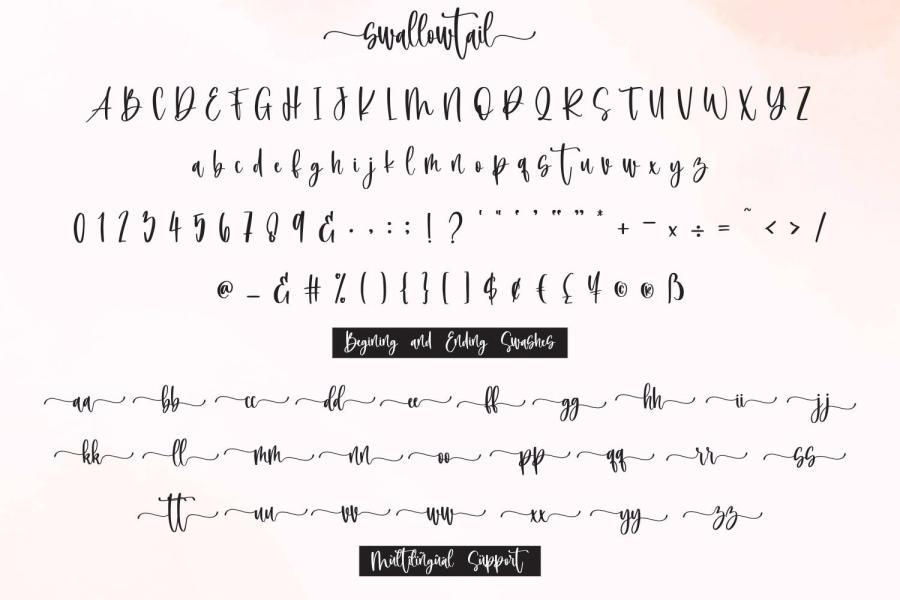 swallowtail
A B C D E F G H I J K L M N O P Q R S T U V W X Y Z
a b c d e f g h i j k l m n o p q s t u v w x y z
0 1 2 3 4 5 6 7 8 9 & . , : ; ! ? ' " ‘ ’ “ ” * + – x ÷ = ~ < > /
@ _ & # % ( ) { } [ ] $ ¢ € £ ¥ © ® ß
Begining and Ending Swashes
aa bb cc dd ee ff gg hh ii jj
kk ll mm nn oo pp qq rr ss
tt uu vv ww xx yy zz
Multilingual Support